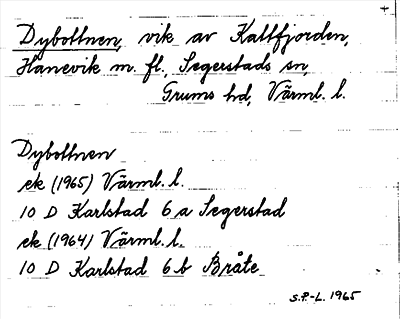 Dybottnen, vik av Kattfjorden,
Hanevik m. fl., Segerstads sn,
Grums hd, Värml. l.
Dybottnen
ek (1965) Värml. l.
10 D Karlstad 6 a Segerstad
ek (1964) Värml. l.
10 D Karlstad 6 b Bråte
S.P.-L. 1965